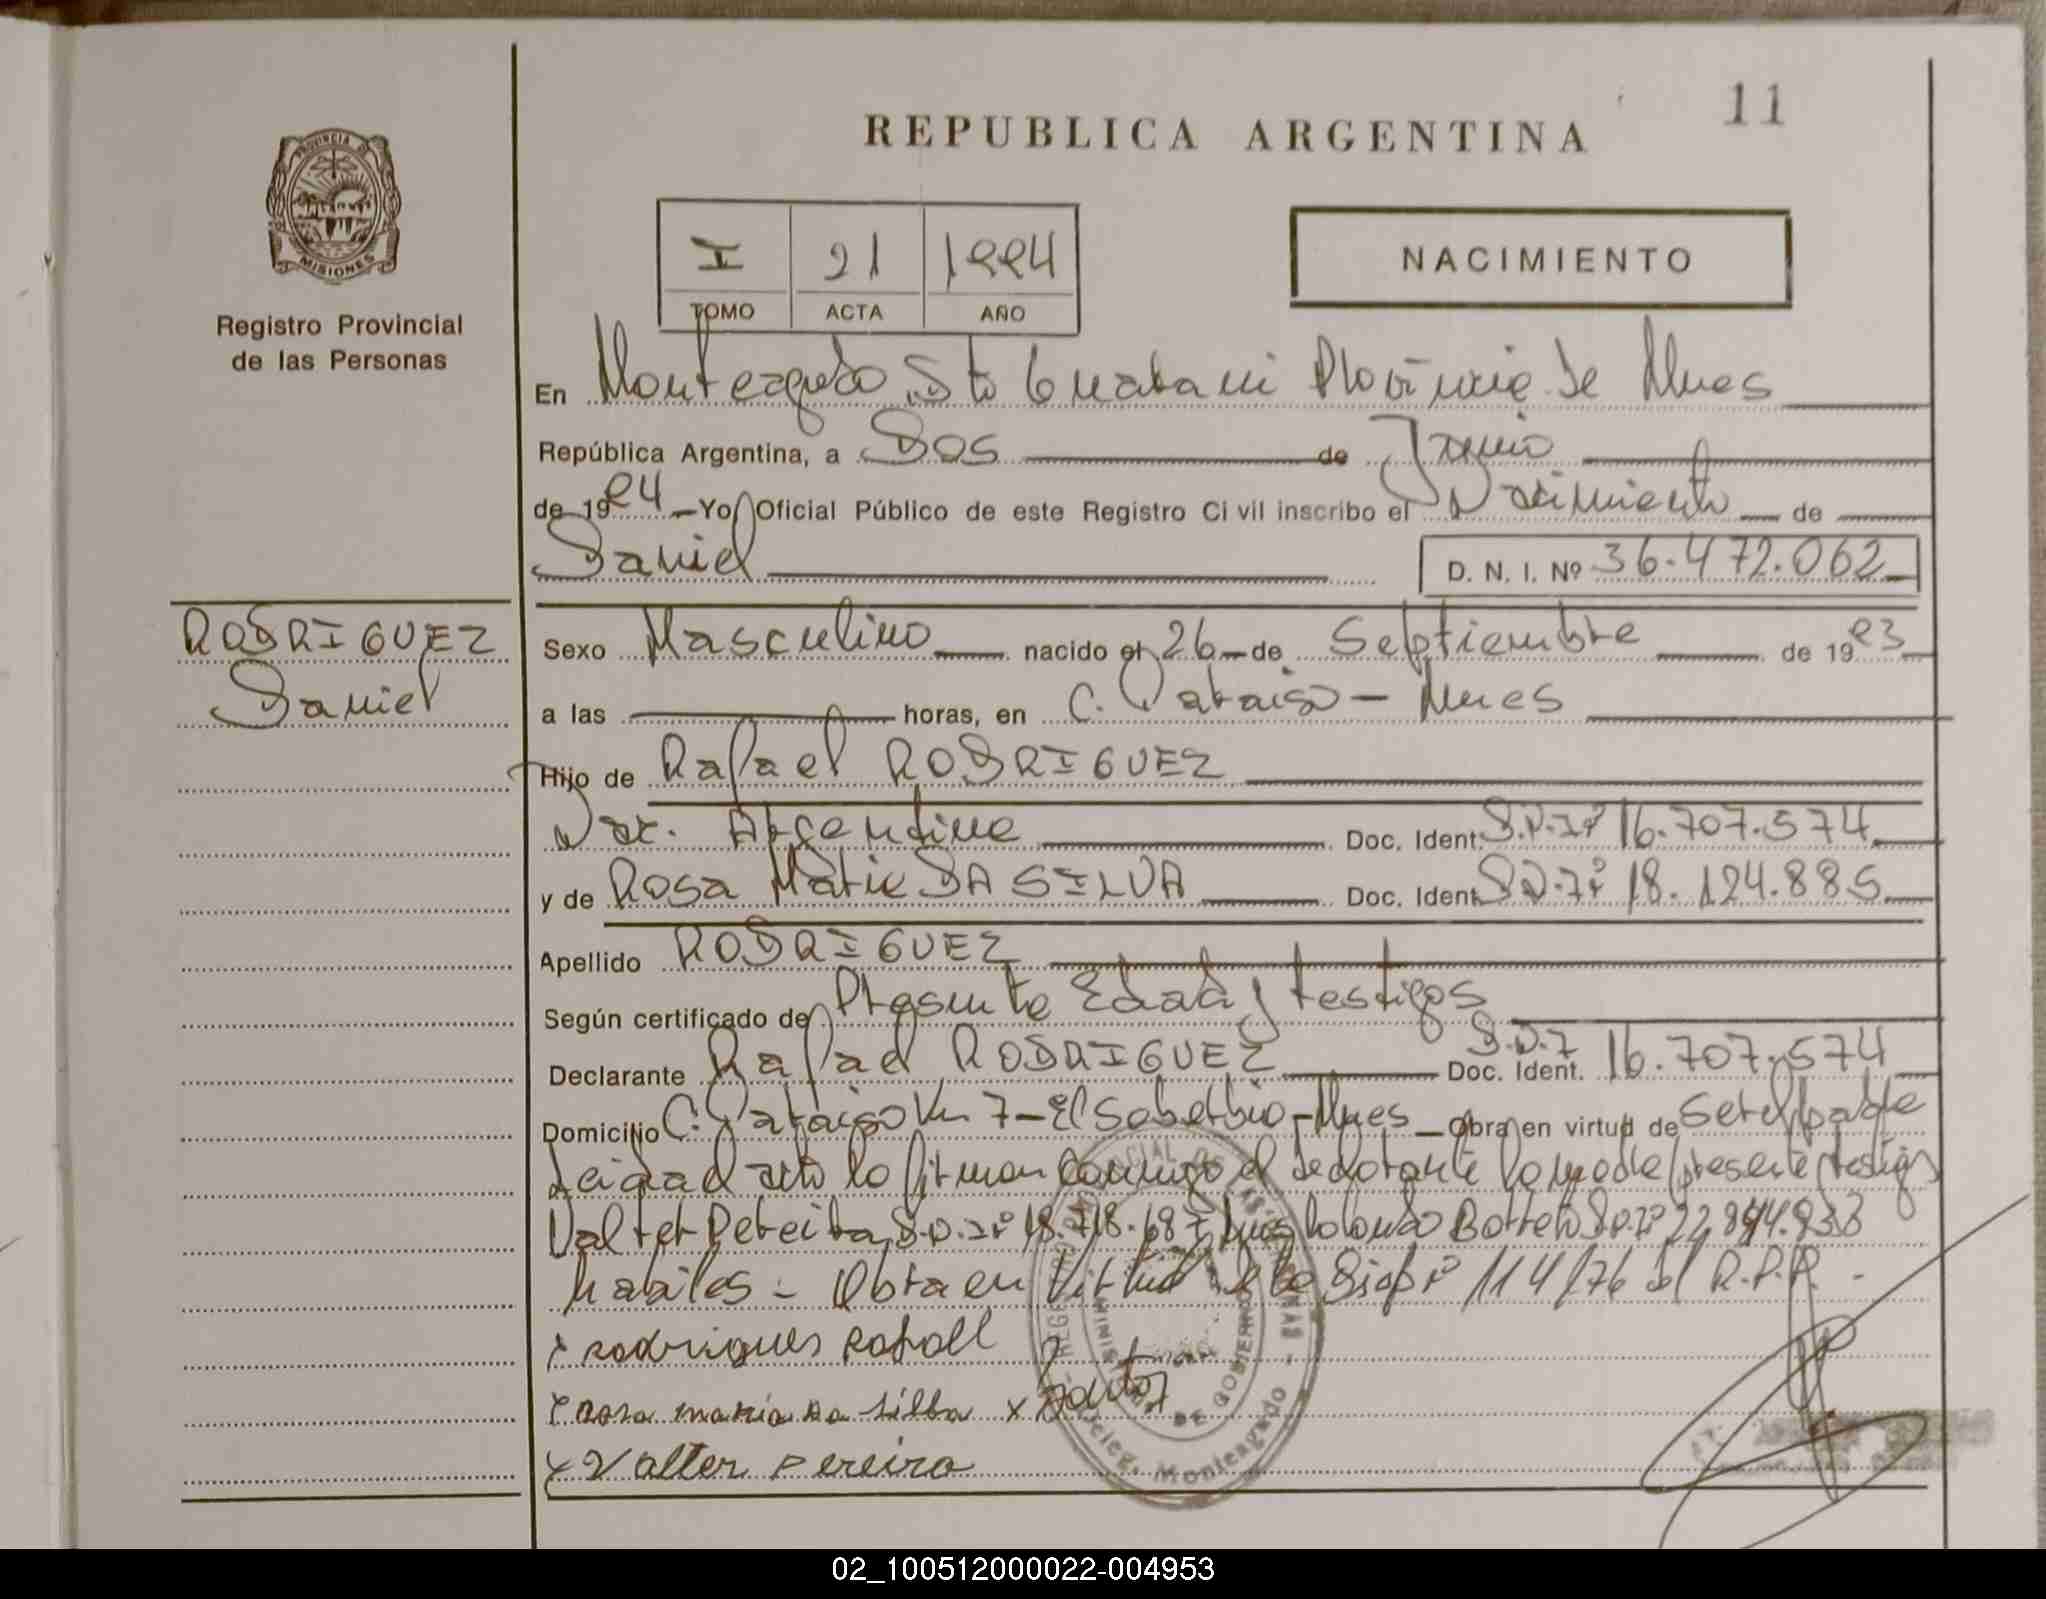 11
REPUBLICA ARGENTINA
PROVINCIA DE
MISIONES
Registro Provincial
de las Personas
I 21 1994
TOMO ACTA AÑO
NACIMIENTO
En Monteagudo Dto Guarani Provincia de Mnes
República Argentina, a Dos de Junio
de 1994 Yo, Oficial Público de este Registro Civil inscribo el Nacimiento de
Daniel D. N. I. Nº 36.472.062
RODRIGUEZ
Daniel
Sexo Masculino nacido el 26 de Septiembre de 1993
a las horas, en C. Paraiso - Mnes
Hijo de Rafael RODRIGUEZ
Nac. Argentina Doc. Ident. D.N.Iº 16.707.574
y de Rosa Maria DA SILVA Doc. Ident. D.N.Iº 18.124.885
Apellido RODRIGUEZ
Según certificado de Presunta Edad y testigos
Declarante Rafael RODRIGUEZ Doc. Ident. D.N.I 16.707.574
Domicilio C. Paraiso Km 7 - El Soberbio - Mnes Obra en virtud de ser el padre
Leida el acta lo firman conmigo el declarante la madre presente testigos
Valter Pereira D.N.Iº 18.718.687 Borreto D.N.Iº
habiles - Obra en Virtud de la Disp Nº 114/76 del R.P.P. -
x rodrigues Rafael
x rosa maria da silba x
x Valter Pereira
REGISTRO PROVINCIAL DE LAS PERSONAS
MINISTERIO DE GOBIERNO
Deleg. Monteagudo
02_100512000022-004953